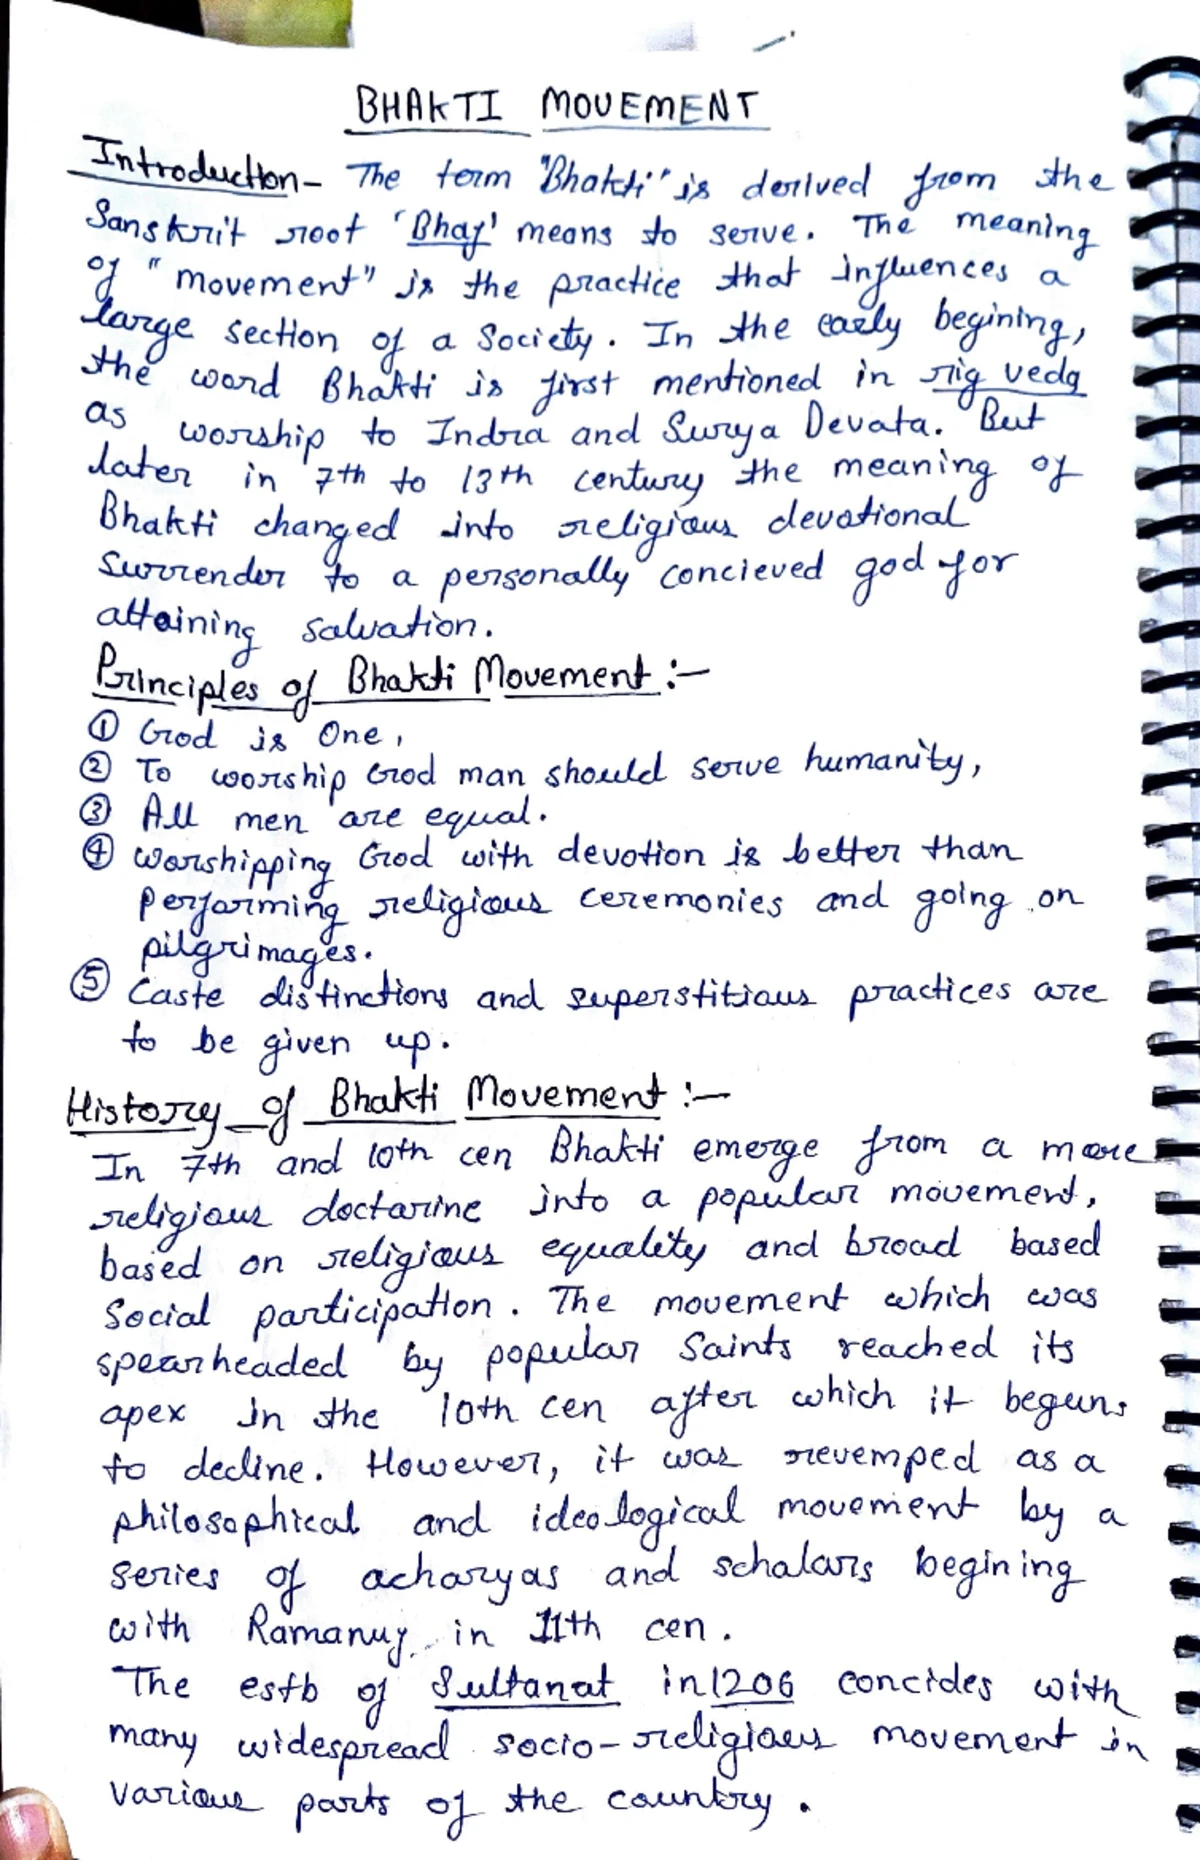 BHAKTI MOVEMENT
Introduction- The term "Bhakti" is derived from the
Sanskrit root 'Bhaj' means to serve. The meaning
of "movement" is the practice that influences a
large section of a Society. In the early begining,
the word Bhakti is first mentioned in rig veda
as worship to Indra and Surya Devata. But
later in 7th to 13th century the meaning of
Bhakti changed into religious devotional
surrender to a personally concieved god for
attaining salvation.
Principles of Bhakti Movement :-
① God is One,
② To worship God man should serve humanity,
③ All men are equal.
④ Worshipping God with devotion is better than
performing religious ceremonies and going on
pilgrimages.
⑤ Caste distinctions and superstitious practices are
to be given up.
History of Bhakti Movement :-
In 7th and 10th cen Bhakti emerge from a more
religious doctarine into a popular movement,
based on religious equality and broad based
Social participation. The movement which was
spearheaded by popular Saints reached its
apex in the 10th cen after which it beguns
to decline. However, it was revemped as a
philosophical and ideological movement by a
series of acharyas and scholars begining
with Ramanuj in 11th cen.
The estb of Sultanat in 1206 concides with
many widespread socio-religious movement in
various parts of the country.